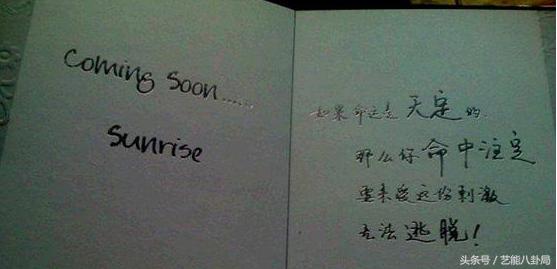 Coming Soon......
Sunrise
如果命运是天定的
那么你命中注定
要来受这份刺激
无法逃脱!
头条号 / 艺能八卦局